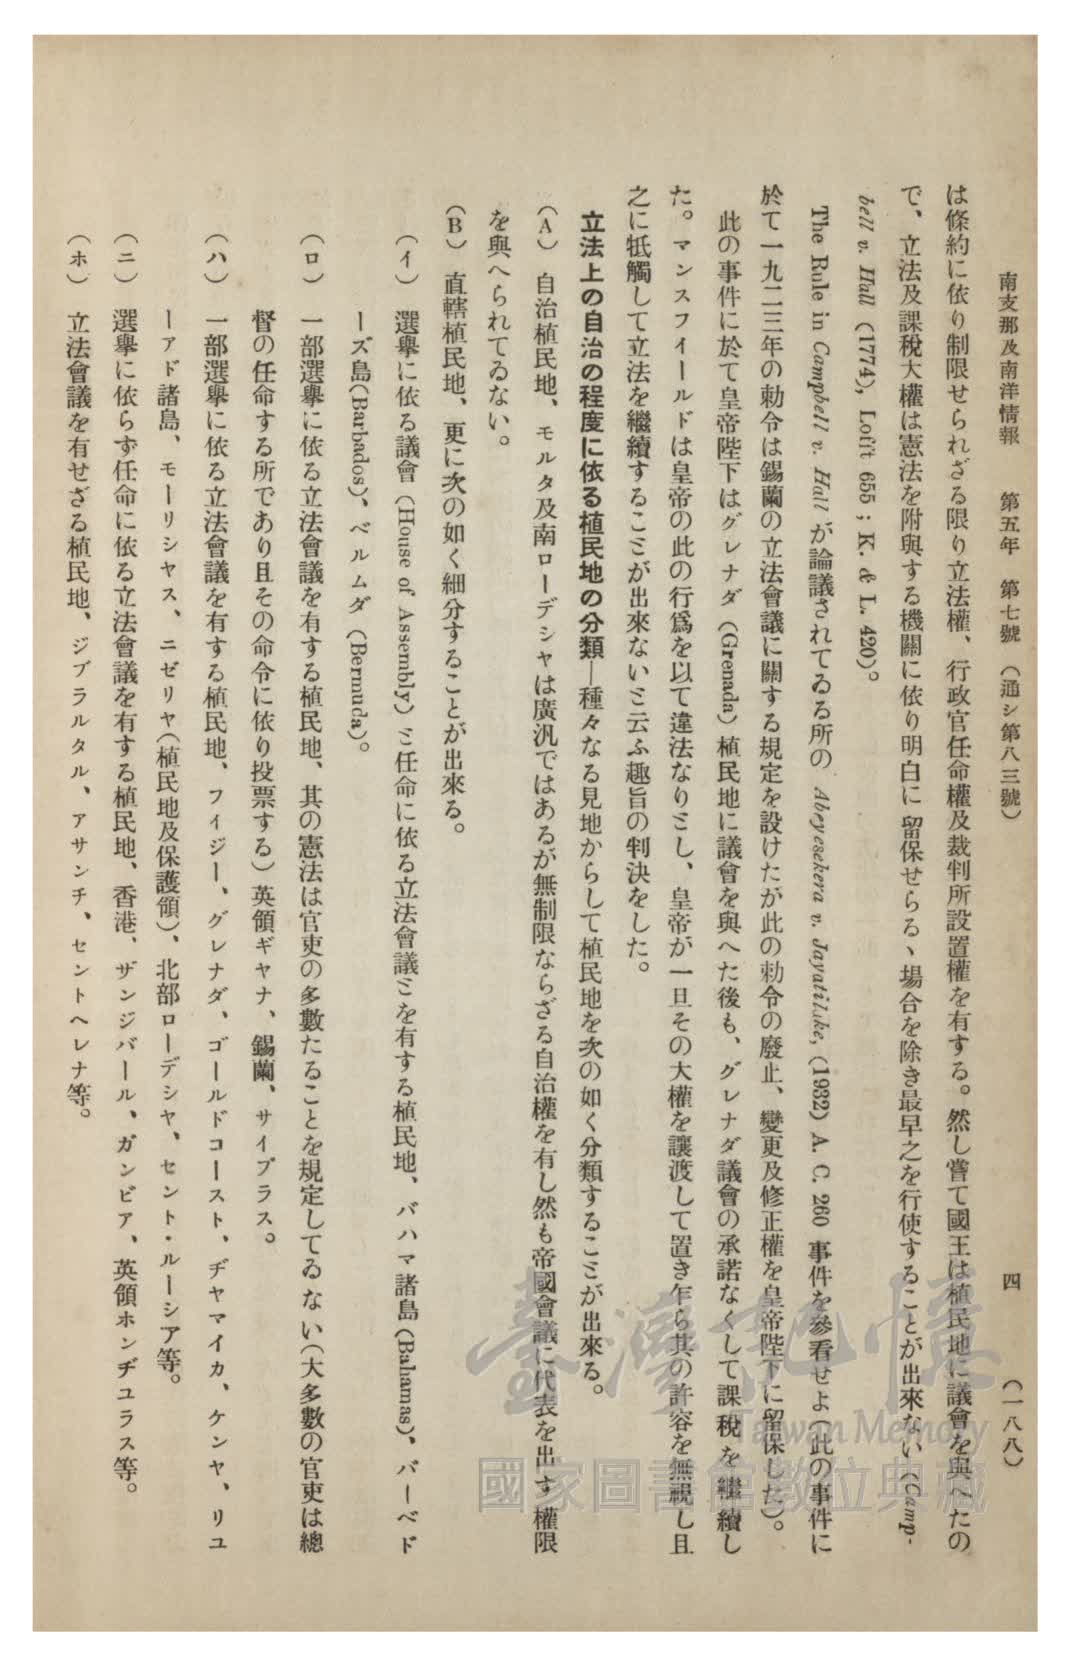 南支那及南洋情報　第五年　第七號　（通シ第八三號）　四　（一八八）
は條約に依り制限せられざる限り立法權、行政官任命權及裁判所設置權を有する。然し嘗て國王は植民地に議會を與へたの
で、立法及課税大權は憲法を附與する機關に依り明白に留保せらるゝ場合を除き最早之を行使することが出來ない（Camp-
bell v. Hall (1774), Lofft 655 ; K. & L. 420）。
The Rule in Campbell v. Hall が論議されてゐる所の Abeyesekera v. Jayatilake, (1932) A. C. 260 事件を參看せよ（此の事件に
於て一九二三年の勅令は錫蘭の立法會議に關する規定を設けたが此の勅令の廢止、變更及修正權を皇帝陛下に留保した）。
此の事件に於て皇帝陛下はグレナダ（Grenada）植民地に議會を與へた後も、グレナダ議會の承諾なくして課税を繼續し
た。マンスフイールドは皇帝の此の行爲を以て違法なりとし、皇帝が一旦その大權を讓渡して置き乍ら其の許容を無視し且
之に牴觸して立法を繼續することが出來ないと云ふ趣旨の判決をした。
立法上の自治の程度に依る植民地の分類―種々なる見地からして植民地を次の如く分類することが出來る。
（A）　自治植民地、モルタ及南ローデシヤは廣汎ではあるが無制限ならざる自治權を有し然も帝國會議に代表を出す權限
を與へられてゐない。
（B）　直轄植民地、更に次の如く細分することが出來る。
（イ）　選擧に依る議會（House of Assembly）と任命に依る立法會議とを有する植民地、バハマ諸島（Bahamas）、バーベド
ーズ島（Barbados）、ベルムダ（Bermuda）。
（ロ）　一部選擧に依る立法會議を有する植民地、其の憲法は官吏の多數たることを規定してゐない（大多數の官吏は總
督の任命する所であり且その命令に依り投票する）英領ギヤナ、錫蘭、サイプラス。
（ハ）　一部選擧に依る立法會議を有する植民地、フィジー、グレナダ、ゴールドコースト、ヂヤマイカ、ケンヤ、リユ
ーアド諸島、モーリシヤス、ニゼリヤ（植民地及保護領）、北部ローデシヤ、セント・ルーシア等。
（ニ）　選擧に依らず任命に依る立法會議を有する植民地、香港、ザンジバール、ガンビア、英領ホンヂユラス等。
（ホ）　立法會議を有せざる植民地、ジブラルタル、アサンチ、セントヘレナ等。
臺灣記憶
Taiwan Memory
國家圖書館數位典藏